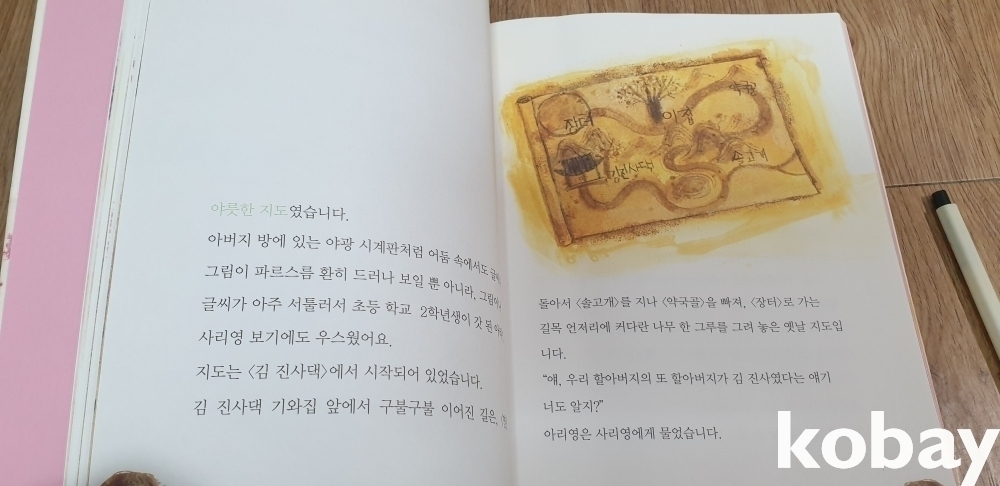 야릇한 지도였습니다.
아버지 방에 있는 야광 시계판처럼 어둠 속에서도
그림이 파르스름 환히 드러나 보일 뿐 아니라,
글씨가 아주 서툴러서 초등 학교 2학년생이 갓 된
사리영 보기에도 우스웠어요.
지도는 〈김 진사댁〉에서 시작되어 있었습니다.
김 진사댁 기와집 앞에서 구불구불 이어진 길은,
장터
이집
약국골
솔고개
김진사댁
돌아서 〈솔고개〉를 지나 〈약국골〉을 빠져, 〈장터〉로 가는
길목 언저리에 커다란 나무 한 그루를 그려 놓은 옛날 지도입
니다.
“얘, 우리 할아버지의 또 할아버지가 김 진사였다는 얘기
너도 알지?”
아리영은 사리영에게 물었습니다.
kobay